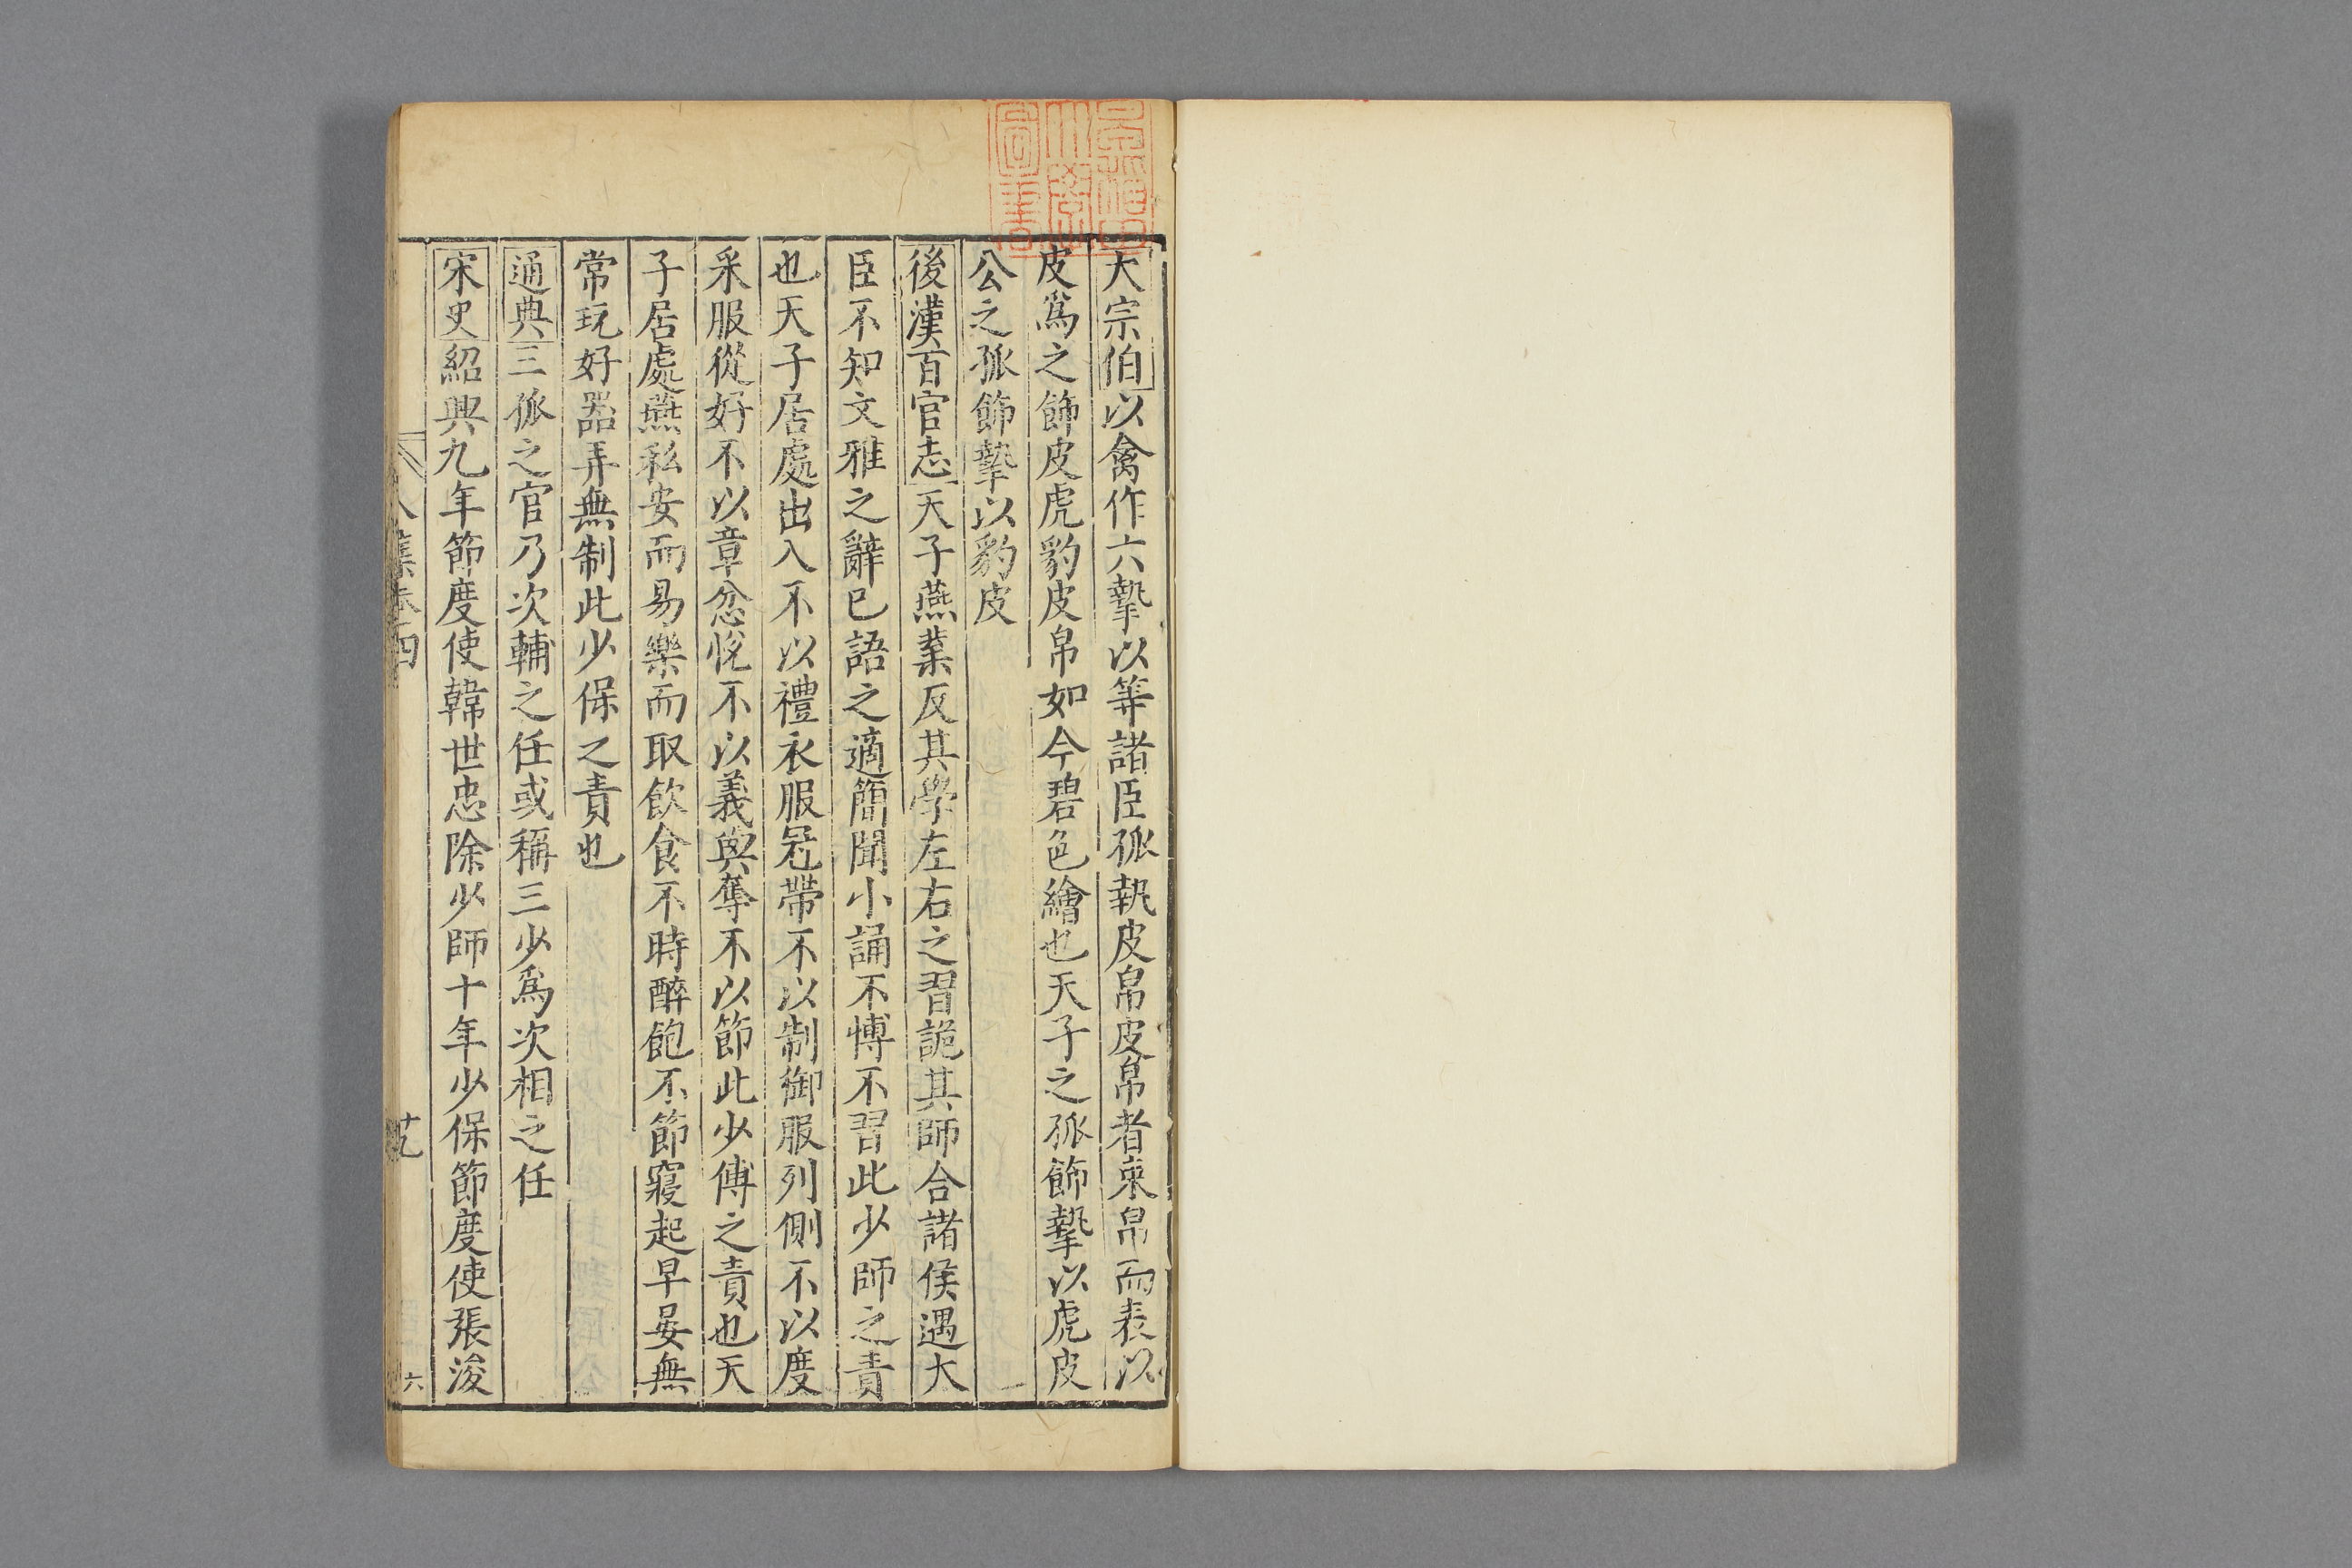 大宗伯以禽作六摯以等諸臣孤執皮帛皮帛者束帛而表以
皮爲之飾皮虎豹皮帛如今碧色繒也天子之孤飾摯以虎皮
公之孤飾摯以豹皮
後漢百官志天子燕業反其學左右之習詭其師合諸侯遇大
臣不知文雅之辭已語之適簡聞小誦不愽不習此少師之責
也天子居處出入不以禮衣服冠帶不以制御服列側不以度
采服從好不以章忿恱不以義與奪不以節此少傅之責也天
子居處燕私安而易樂而取飲食不時醉飽不節寢起早晏無
常玩好器弄無制此少保之責也
通典三孤之官乃次輔之任或稱三少爲次相之任
宋史紹興九年節度使韓世忠除少師十年少保節度使張浚
集卷四
六
圖書